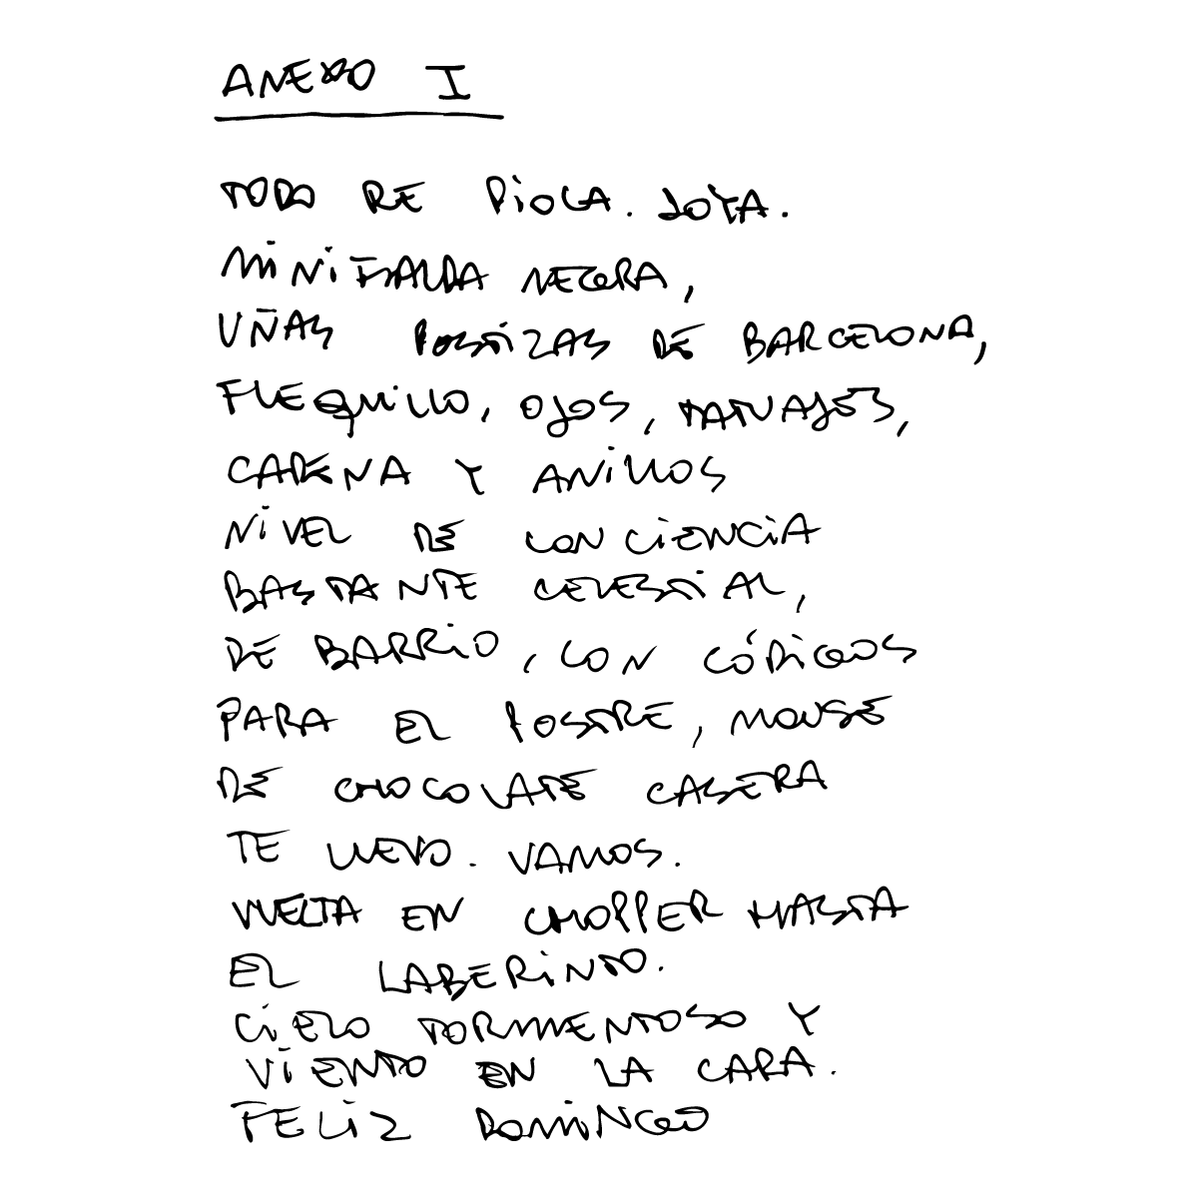 ANEXO I
TODO RE PiOLA. JOYA.
MiNiFALDA NEGRA,
UÑAS POSTiZAS DE BARCELONA,
FLEQUiLLO, OJOS, TATUAJES,
CADENA Y ANiLLOS
NiVEL DE CONCiENCiA
BASTANTE CELESTiAL,
DE BARRiO, CON CÓDiGOS
PARA EL POSTRE, MOUSE
DE CHOCOLATE CASERA
TE LLEVO. VAMOS.
VUELTA EN CHOPPER HASTA
EL LABERiNTO.
CiELO TORMENTOSO Y
ViENTO EN LA CARA.
FELiZ DOMiNGO